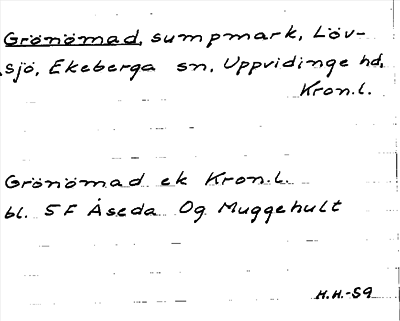 Grönömad, sumpmark, Löv-
sjö, Ekeberga sn, Uppvidinge hd,
Kron.l.
Grönömad ek Kron.l.
bl. 5F Åseda Og Muggehult
H.H.-59